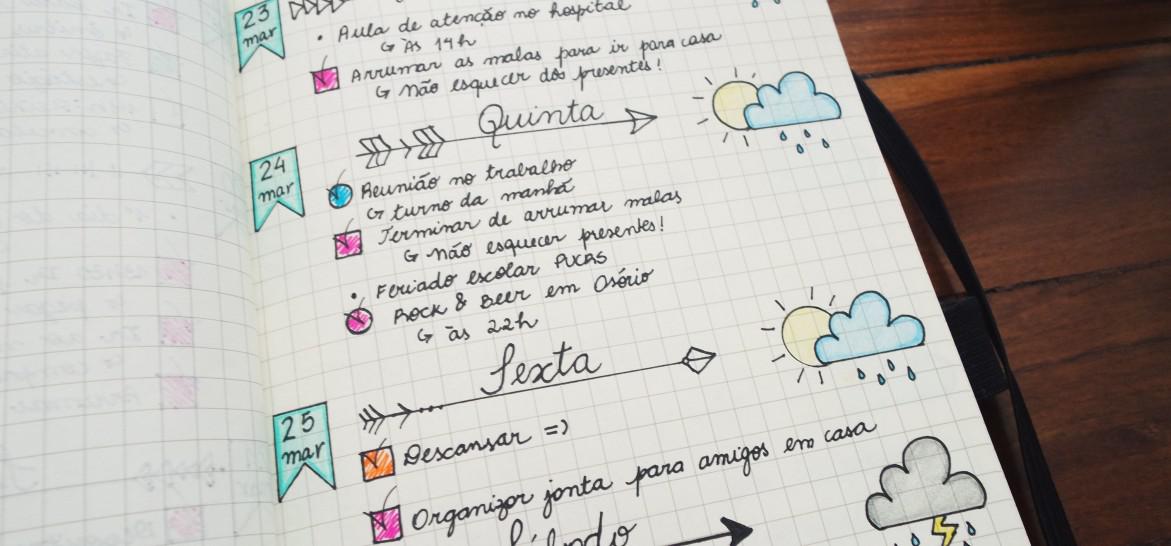 23
mar
• Aula de atenção no hospital
↳ Às 14h
Arrumar as malas para ir para casa
↳ não esquecer dos presentes!
Quinta
24
mar
Reunião no trabalho
↳ turno da manhã
Terminar de arrumar malas
↳ não esquecer presentes!
• Feriado escolar PUCRS
Rock & Beer em Osório
↳ às 22h
Sexta
25
mar
Descansar =)
Organizar janta para amigos em casa
Sábado